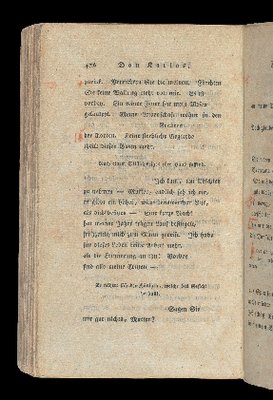 426 Don Karlos.
zurück. Verzeihen Sie die meinen. Fürchten
Sie keine Wallung mehr von mir. Es ist
vorbey. Ein reiner Feuer hat mein Wesen
geläutert. Meine Leidenschaft wohnt in den
Gräbern
der Todten. Keine sterbliche Begierde
theilt diesen Busen mehr.
Nach einem Stillschweigen
Ich kam, um Abschied
zu nehmen — Mutter, endlich seh' ich ein,
es giebt ein höher, wünschenswerther Gut,
als dich besitzen — Eine kurze Nacht
hat meiner Jahre trägen Lauf beflügelt,
frühzeitig mich zum Mann gereift. Ich habe
für dieses Leben keine Arbeit mehr,
als die Erinnerung an ihn! Vorbey
sind alle meine Ernten —
Er nähert sich der Königin, welche das Gesicht
verhüllt.
Sagen Sie
mir gar nichts, Mutter?